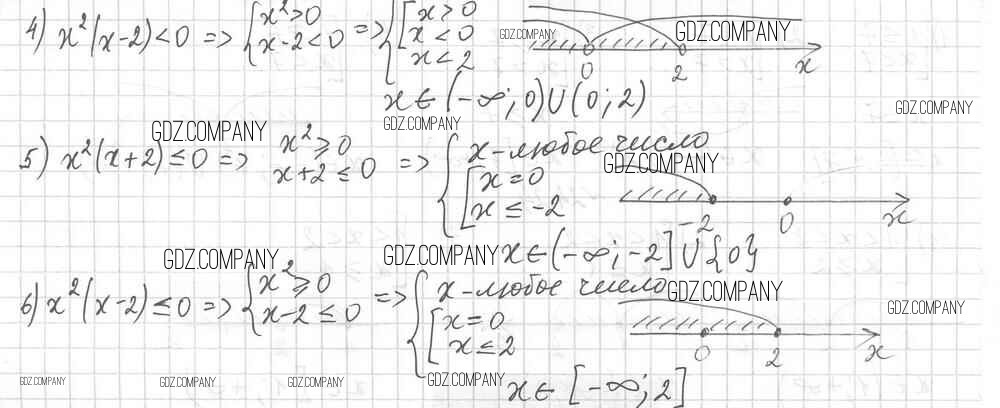 4) x²(x-2)<0 => { x²>0 => { [ x>0
x-2<0 [ x<0
x<2
0 2 x
GDZ.COMPANY GDZ.COMPANY
x ∈ (-∞; 0) U (0; 2)
GDZ.COMPANY
GDZ.COMPANY GDZ.COMPANY
5) x²(x+2) ≤ 0 => x² ⩾ 0 => { x - любое число
x+2 ≤ 0 [ x = 0
[ x ≤ -2
GDZ.COMPANY
-2 0 x
x ∈ (-∞; -2] U {0}
GDZ.COMPANY GDZ.COMPANY
6) x²(x-2) ≤ 0 => { x² ⩾ 0 => { x - любое число
x-2 ≤ 0 [ x = 0
[ x ≤ 2
GDZ.COMPANY GDZ.COMPANY
0 2 x
x ∈ [-∞; 2]
GDZ.COMPANY GDZ.COMPANY GDZ.COMPANY GDZ.COMPANY